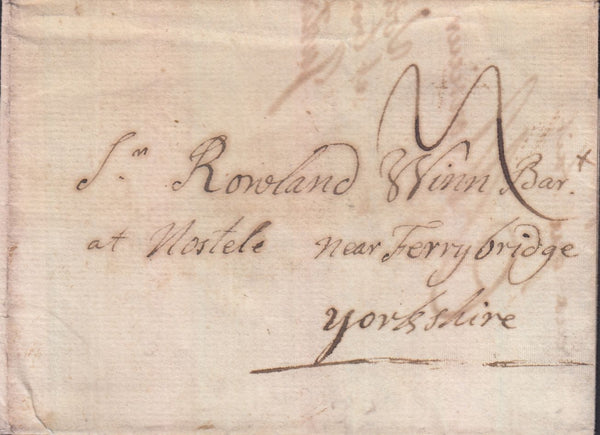 Sr. Rowland Winn Bart.
at Nostele near Ferrybridge
Yorkshire